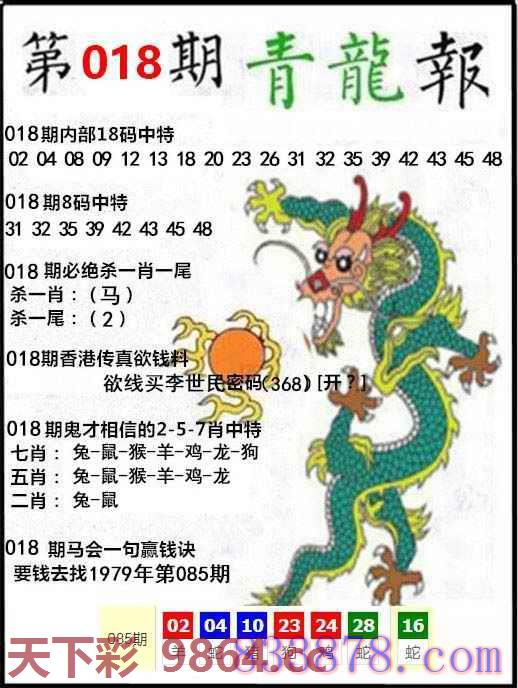 第018期青龍報
018期内部18码中特
02 04 08 09 12 13 18 20 23 26 31 32 35 39 42 43 45 48
018期8码中特
31 32 35 39 42 43 45 48
018期必绝杀一肖一尾
杀一肖：(马)
杀一尾：(2)
018期香港传真欲钱料
欲线买李世民密码(368)[开?]
018期鬼才相信的2-5-7肖中特
七肖：兔-鼠-猴-羊-鸡-龙-狗
五肖：兔-鼠-猴-羊-鸡-龙
二肖：兔-鼠
018期马会一句赢钱诀
要钱去找1979年第085期
085期 02 04 10 23 24 28 16
羊 蛇 猪 狗 鸡 蛇 蛇
天下彩 9864.cc
838878.com